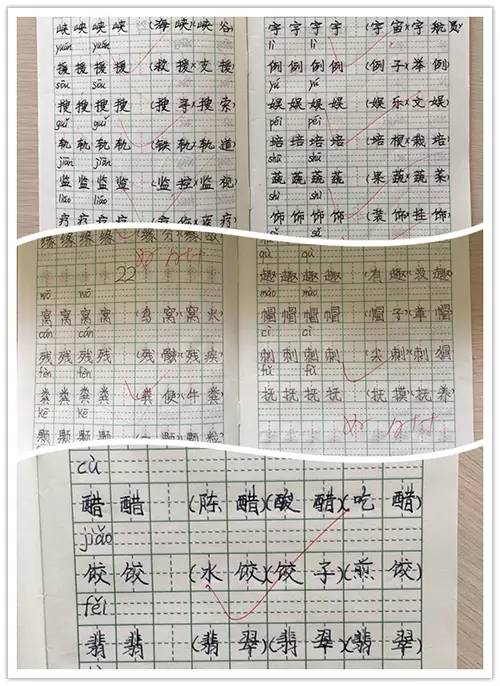 峡 峡 峡 峡 (海 峡)(峡 谷)
yuán yuán
援 援 援 援 (救 援)(支 援)
sōu sōu
搜 搜 搜 搜 (搜 寻)(搜 索)
guǐ guǐ
轨 轨 轨 轨 (铁 轨)(轨 道)
jiān jiān
监 监 监 监 (监 控)(监 视)
liáo liáo
疗 疗 疗 疗
宇 宇 宇 宇 (宇 宙)(宇 航员)
lì lì
例 例 例 例 (例 子)(举 例)
yú yú
娱 娱 娱 娱 (娱 乐)(文 娱)
péi péi
培 培 培 培 (培 根)(栽 培)
shū shū
蔬 蔬 蔬 蔬 (果 蔬)(蔬 菜)
shì shì
饰 饰 饰 饰 (装 饰)(挂 饰)
sǎ sǎ
缘 缘 缘 缘
22
wō wō
窝 窝 窝 窝
cán cán
残 残 残 残 (残 骸)(残 疾)
fèn fèn
粪 粪 粪 粪 (粪 便)(牛 粪)
kē kē
颗 颗 颗 颗
qù qù
趣 趣 趣 趣 (有 趣)(没 趣)
mào mào
帽 帽 帽 帽 (帽 子)(草 帽)
cì cì
刺 刺 刺 刺 (尖 刺)(刺 猬)
fǔ fǔ
抚 抚 抚 抚 (抚 摸)(抚 养)
cù
醋 醋 (陈 醋)(酸 醋)(吃 醋)
jiǎo
饺 饺 (水 饺)(饺 子)(煎 饺)
fěi
翡 翡 (翡 翠)(翡 翠)(翡 翠)